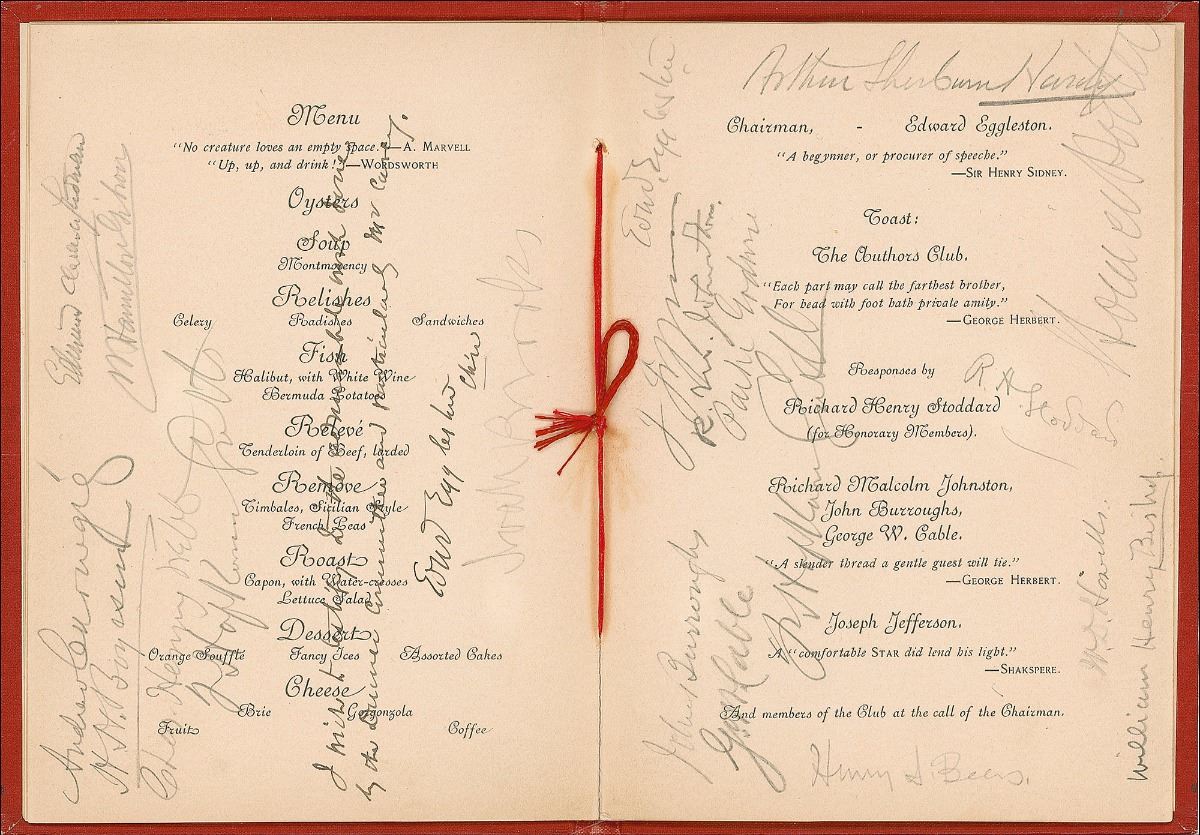 Menu
"No creature loves an empty space."—A. MARVELL
"Up, up, and drink!"—WORDSWORTH
Oysters
Soup
Montmorency
Relishes
Celery Radishes Sandwiches
Fish
Halibut, with White Wine
Bermuda Potatoes
Relevé
Tenderloin of Beef, larded
Remove
Timbales, Sicilian Style
French Peas
Roast
Capon, with Water-cresses
Lettuce Salad
Dessert
Orange Soufflé Fancy Ices Assorted Cakes
Cheese
Brie Gorgonzola
Fruit Coffee
Edmund Clarence Stedman
Hamilton Gibson
Andrew Carnegie
H. H. Boyesen
Chas. Henry Webb
I wish to testify to the
by the Dinner Committee and particularly Mr Carey.
Edwd Eggleston
Chn
Arthur Sherburne Hardy
Chairman, - Edward Eggleston.
"A begynner, or procurer of speeche."
—SIR HENRY SIDNEY.
Toast:
The Authors Club.
"Each part may call the farthest brother,
For head with foot hath private amity."
—GEORGE HERBERT.
Responses by
Richard Henry Stoddard
(for Honorary Members).
Richard Malcolm Johnston,
John Burroughs,
George W. Cable.
"A slender thread a gentle guest will tie."
—GEORGE HERBERT.
Joseph Jefferson.
"A comfortable STAR did lend his light."
—SHAKSPERE.
And members of the Club at the call of the Chairman.
Edwd. Eggleston
R. M. Johnston
Parke Godwin
R. H. Stoddard
John Burroughs
G. W. Cable
W. D. Howells.
William Henry Bishop.
Henry A. Beers.